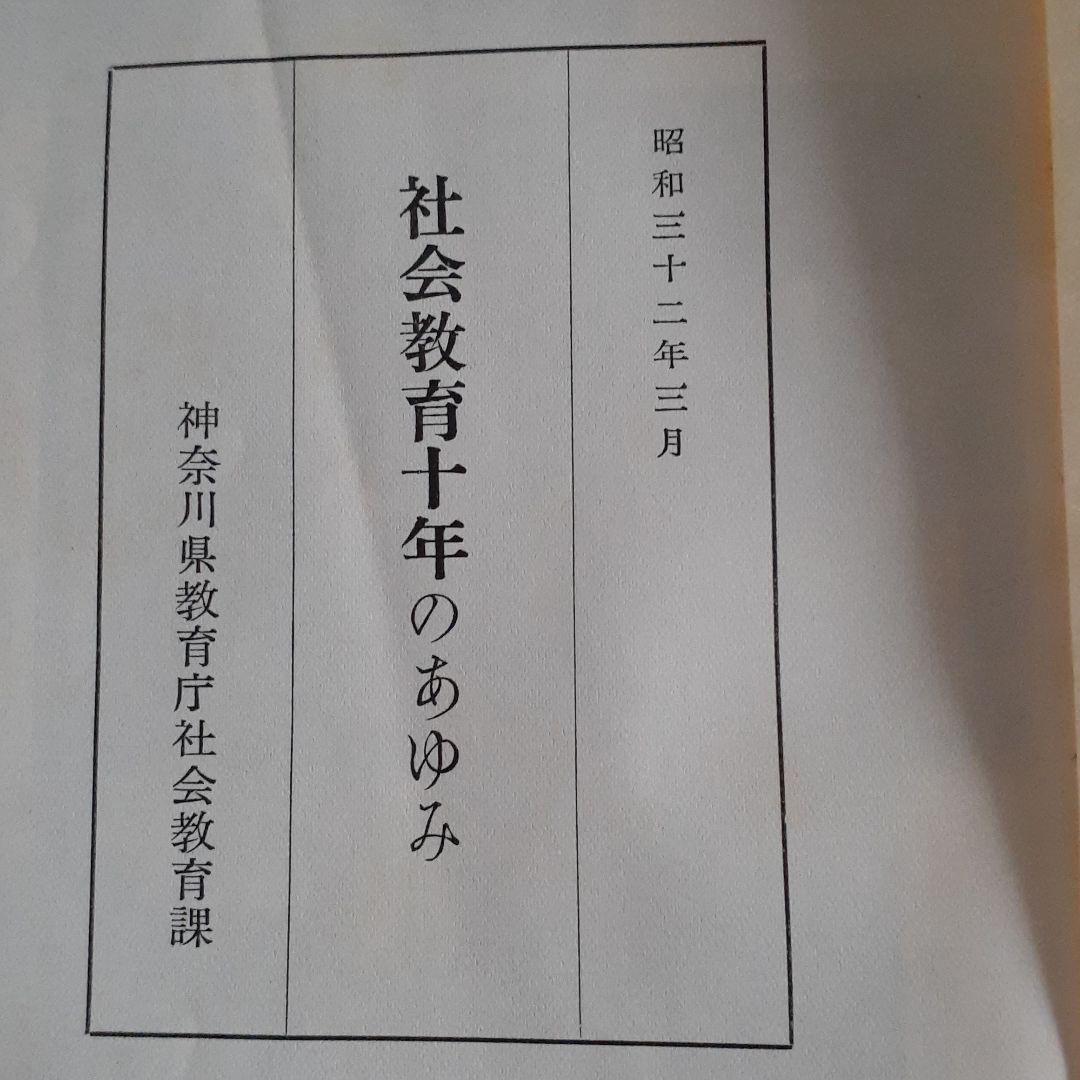 昭和三十二年三月
社会教育十年のあゆみ
神奈川県教育庁社会教育課